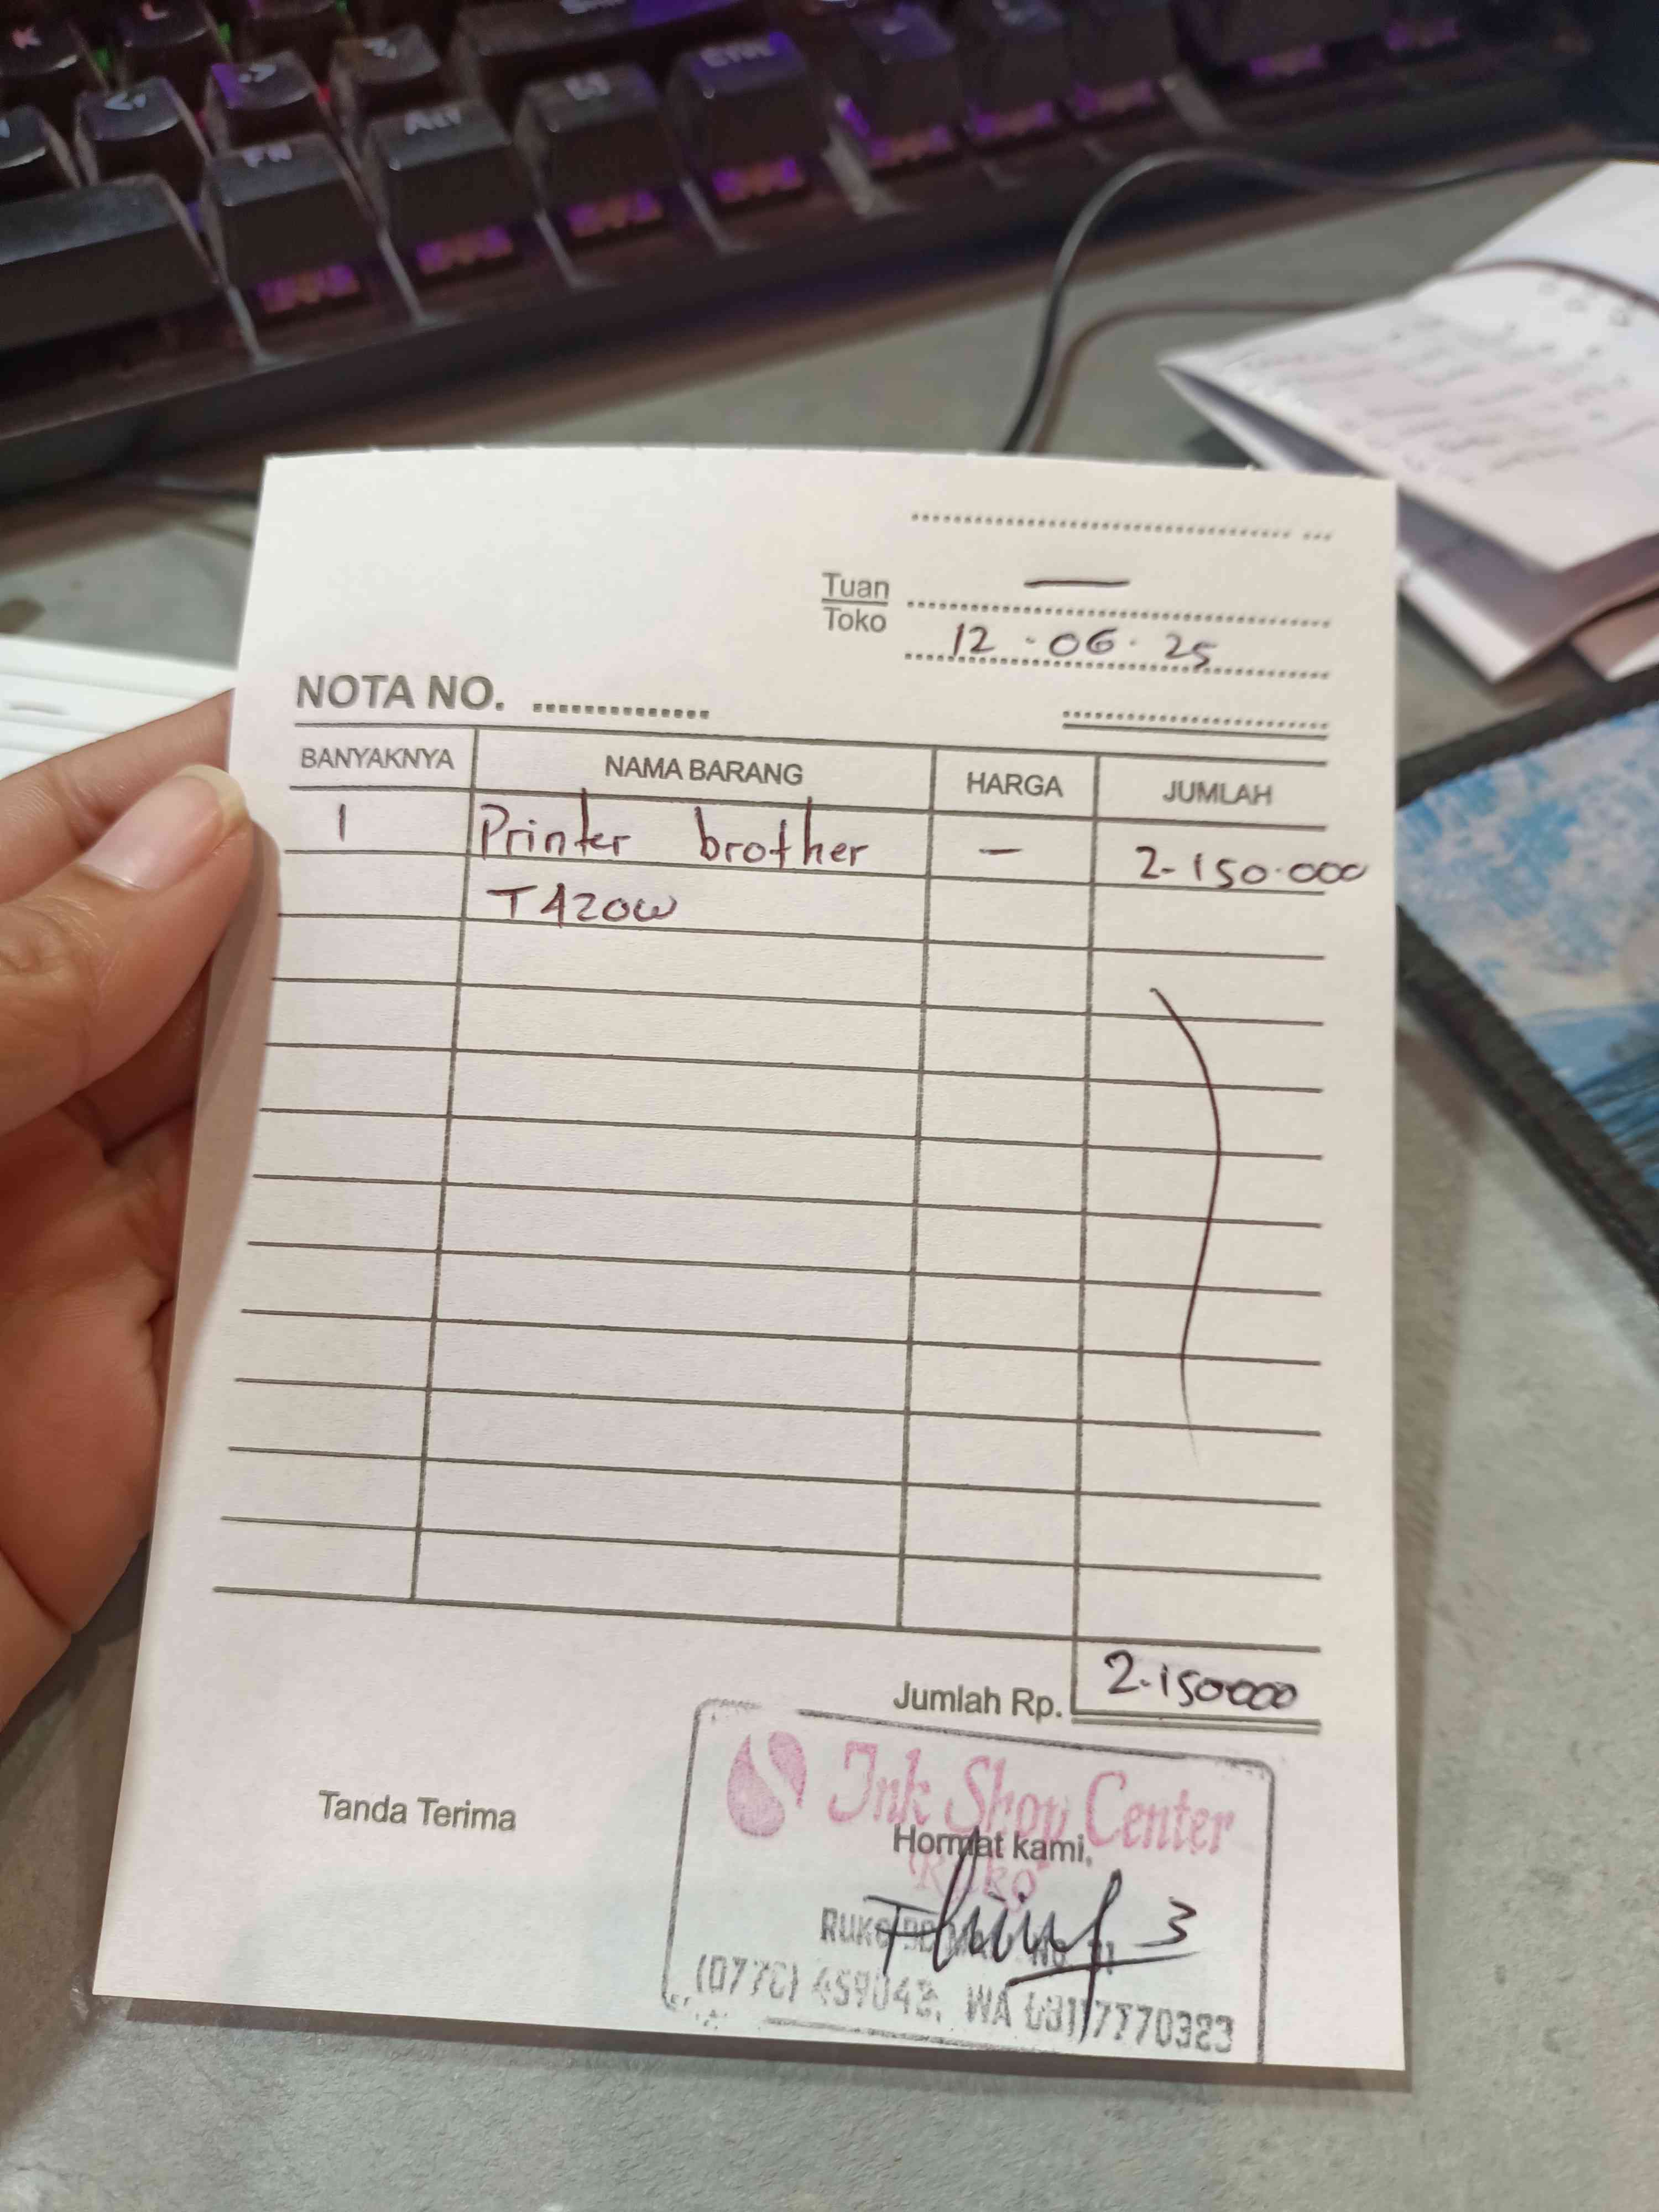 K L
Alt
FN
Ctrl
Tuan
Toko
12 . 06 . 25
NOTA NO.
BANYAKNYA NAMA BARANG HARGA JUMLAH
1 Printer brother — 2.150.000
T420W
Jumlah Rp. 2.150000
Tanda Terima
Ink Shop Center
Hormat kami,
"Ruko"
RUKO
3
WA